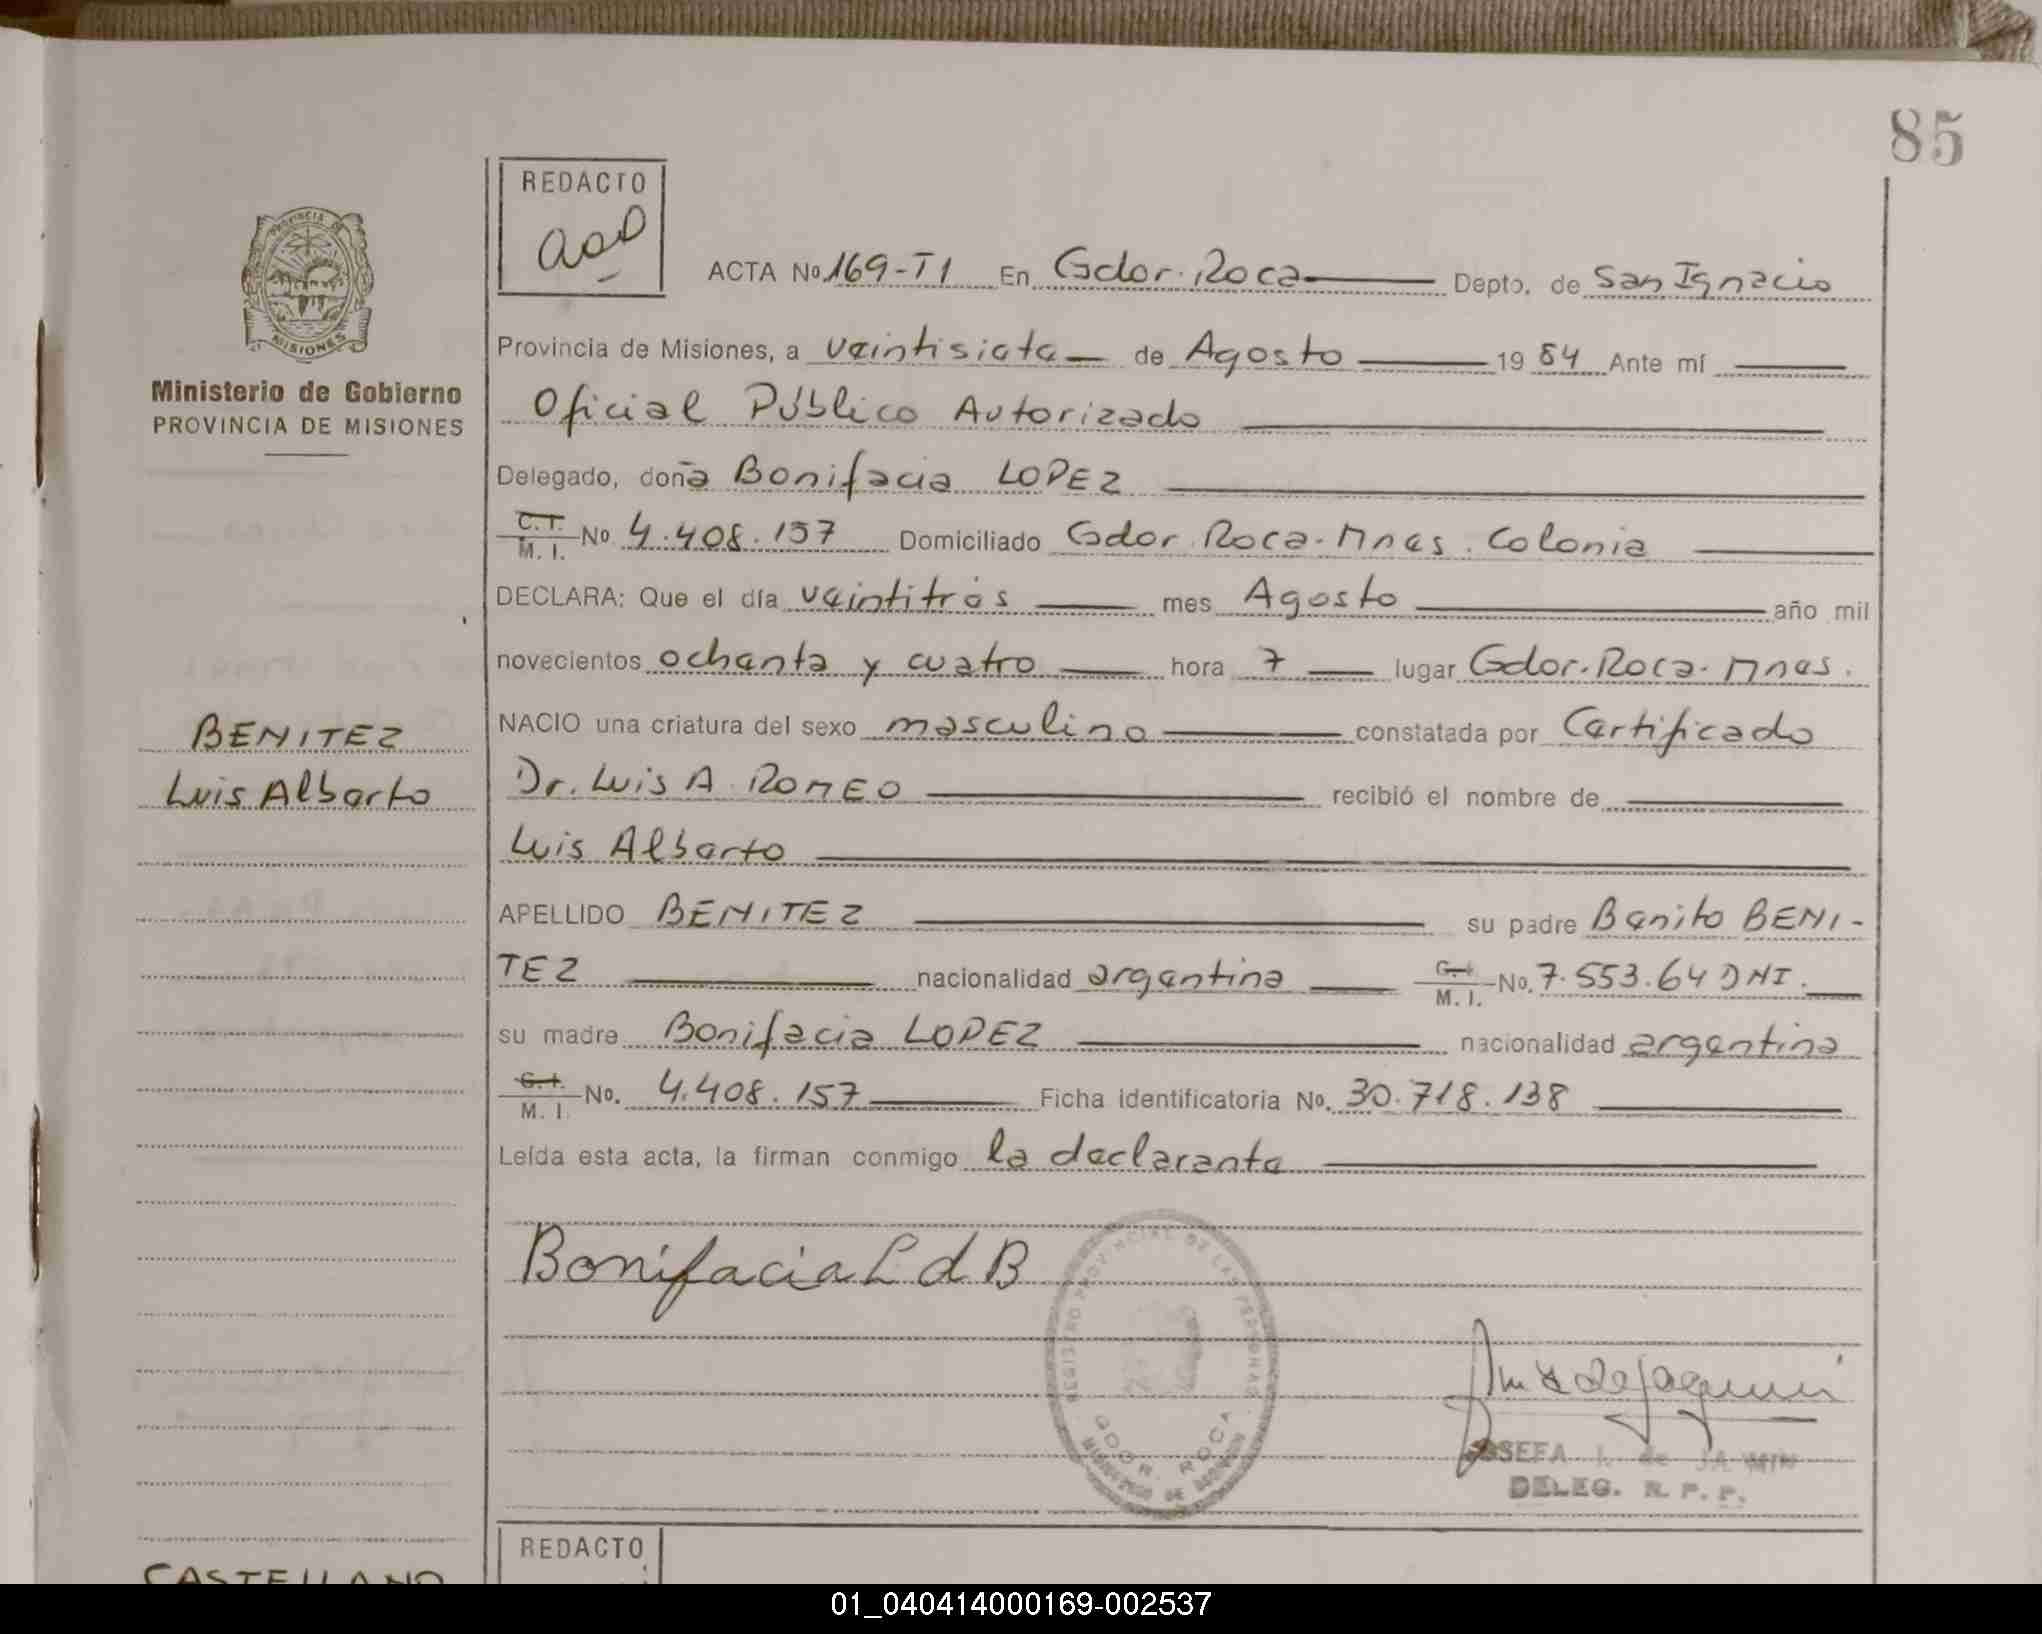 85
REDACTO
PROVINCIA DE
MISIONES
ACTA Nº 169-T1 En Gdor. Roca Depto. de San Ignacio
Provincia de Misiones, a veintisiete de Agosto 19 84 Ante mí
Ministerio de Gobierno
PROVINCIA DE MISIONES
Oficial Público Autorizado
Delegado, doña Bonifacia LOPEZ
C.I. M. I. Nº 4.408.157 Domiciliado Gdor. Roca. Mnes. Colonia
DECLARA: Que el día veintitrés mes Agosto año mil
novecientos ochenta y cuatro hora 7 lugar Gdor. Roca. Mnes.
BENITEZ
Luis Alberto
NACIO una criatura del sexo masculino constatada por Certificado
Dr. Luis A. ROMEO recibió el nombre de
Luis Alberto
APELLIDO BENITEZ su padre Benito BENI-
TEZ nacionalidad argentina C.I. M. I. No. 7.553.64 DNI.
su madre Bonifacia LOPEZ nacionalidad argentina
C.I. M. I. No. 4.408.157 Ficha identificatoria No. 30.718.138
Leída esta acta, la firman conmigo la declarante
Bonifacia L d B
REGISTRO PROVINCIAL DE LAS PERSONAS
GDOR. ROCA
JOSEFA de
DELEG. R. P. P.
REDACTO
CASTELLANO
01_040414000169-002537